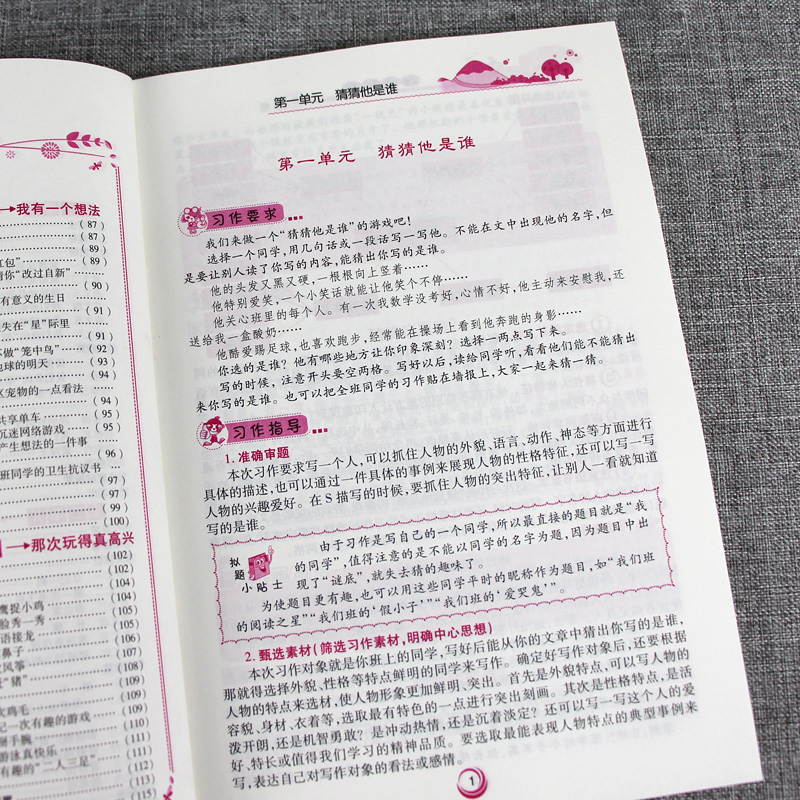 →我有一个想法
(87)
(87)
(89)
红包” (89)
猜你“改过自新”
(90)
有意义的生日
(91)
失在“星”际里
(91)
做“笼中鸟” (92)
地球的明天 (93)
(94)
区宠物的一点看法
(94)
共享单车 (95)
沉迷网络游戏 (95)
产生想法的一件事
(96)
班同学的卫生抗议书
(97)
(97)
(99)
(100)
→那次玩得真高兴
(102)
(102)
(104)
鹰捉小鸡 (104)
脸秀一秀 (105)
语接龙 (105)
鼻子 (106)
风筝 (106)
“猪” (107)
(107)
鸡毛 (108)
记一次有趣的游戏 (109)
掰手腕 (110)
游泳真快乐 (110)
有趣的“二人三足”
(112)
(113)
(115)
第一单元 猜猜他是谁
第一单元 猜猜他是谁
习作要求
我们来做一个“猜猜他是谁”的游戏吧!
选择一个同学,用几句话或一段话写一写他。不能在文中出现他的名字,但
是要让别人读了你写的内容,能猜出你写的是谁。
他的头发又黑又硬,一根根向上竖着……
他特别爱笑,一个小笑话就能让他笑个不停……
他关心班里的每个人。有一次我数学没考好,心情不好,他主动来安慰我,还
送给我一盒酸奶……
他酷爱踢足球,也喜欢跑步,经常能在操场上看到他奔跑的身影……
你选的是谁?他有哪些地方让你印象深刻?选择一两点写下来。
写的时候,注意开头要空两格。写好以后,读给同学听,看看他们能不能猜出
来你写的是谁。也可以把全班同学的习作贴在墙报上,大家一起来猜一猜。
习作指导
1. 准确审题
本次习作要求写一个人,可以抓住人物的外貌、语言、动作、神态等方面进行
具体的描述,也可以通过一件具体的事例来展现人物的性格特征,还可以写一写
人物的兴趣爱好。在S描写的时候,要抓住人物的突出特征,让别人一看就知道
写的是谁。
拟题小贴士
由于习作是写自己的一个同学,所以最直接的题目就是“我
的同学”,值得注意的是不能以同学的名字为题,因为题目中出
现了“谜底”,就失去猜的趣味了。
为使题目更有趣,也可以用这些同学平时的昵称作为题目,如“我们班
的阅读之星”“我们班的‘假小子’”“我们班的‘爱哭鬼’”。
2. 甄选素材(筛选习作素材,明确中心思想)
本次习作对象就是你班上的同学,写好后能从你的文章中猜出你写的是谁,
那就得选择外貌、性格等特点鲜明的同学来写作。确定好写作对象后,还要根据
人物的特点来选材,使人物形象更加鲜明、突出。首先是外貌特点,可以写人物的
容貌、身材、衣着等,选取最有特色的一点进行突出刻画。其次是性格特点,是活
泼开朗,还是机智勇敢?是冲动热情,还是沉着淡定?还可以写一写这个人的爱
好、特长或值得我们学习的精神品质。要选取最能表现人物特点的典型事例来
写,表达自己对写作对象的看法或感情。
1